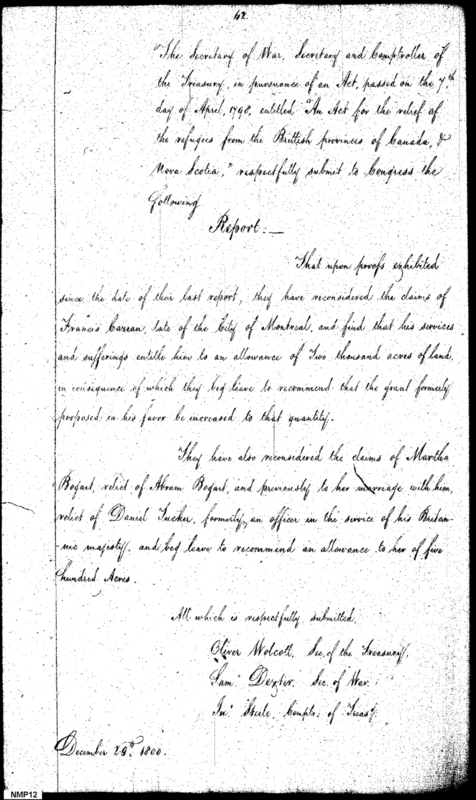 42.
The Secretary of War, Secretary and Comptroller of
the Treasury, in pursuance of an Act, passed on the 7th
day of April, 1798, entitled "An Act for the relief of
the refugees from the Brittish provinces of Canada, &
Nova Scotia," respectfully submit to Congress the
following
Report:—
That upon proofs exhibited
since the date of their last report, they have reconsidered the claims of
Francis Cazeau, late of the City of Montreal, and find that his services
and sufferings entitle him to an allowance of Two thousand acres of land,
in consequence of which they beg leave to recommend that the grant formerly
proposed in his favor be increased to that quantity.
They have also reconsidered the claims of Martha
Bogart, relict of Abram Bogart, and previously to her marriage with him,
relict of Daniel Tucker, formerly an officer in the service of his Britan-
nic majesty, and beg leave to recommend an allowance to her of five
hundred Acres.
All which is respectfully submitted.
Oliver Wolcott, Sec. of the Treasury.
Sam. Dexter, Sec. of War.
Jno. Steele, Comptr: of Treasy.
December 29th. 1800.
NMP12